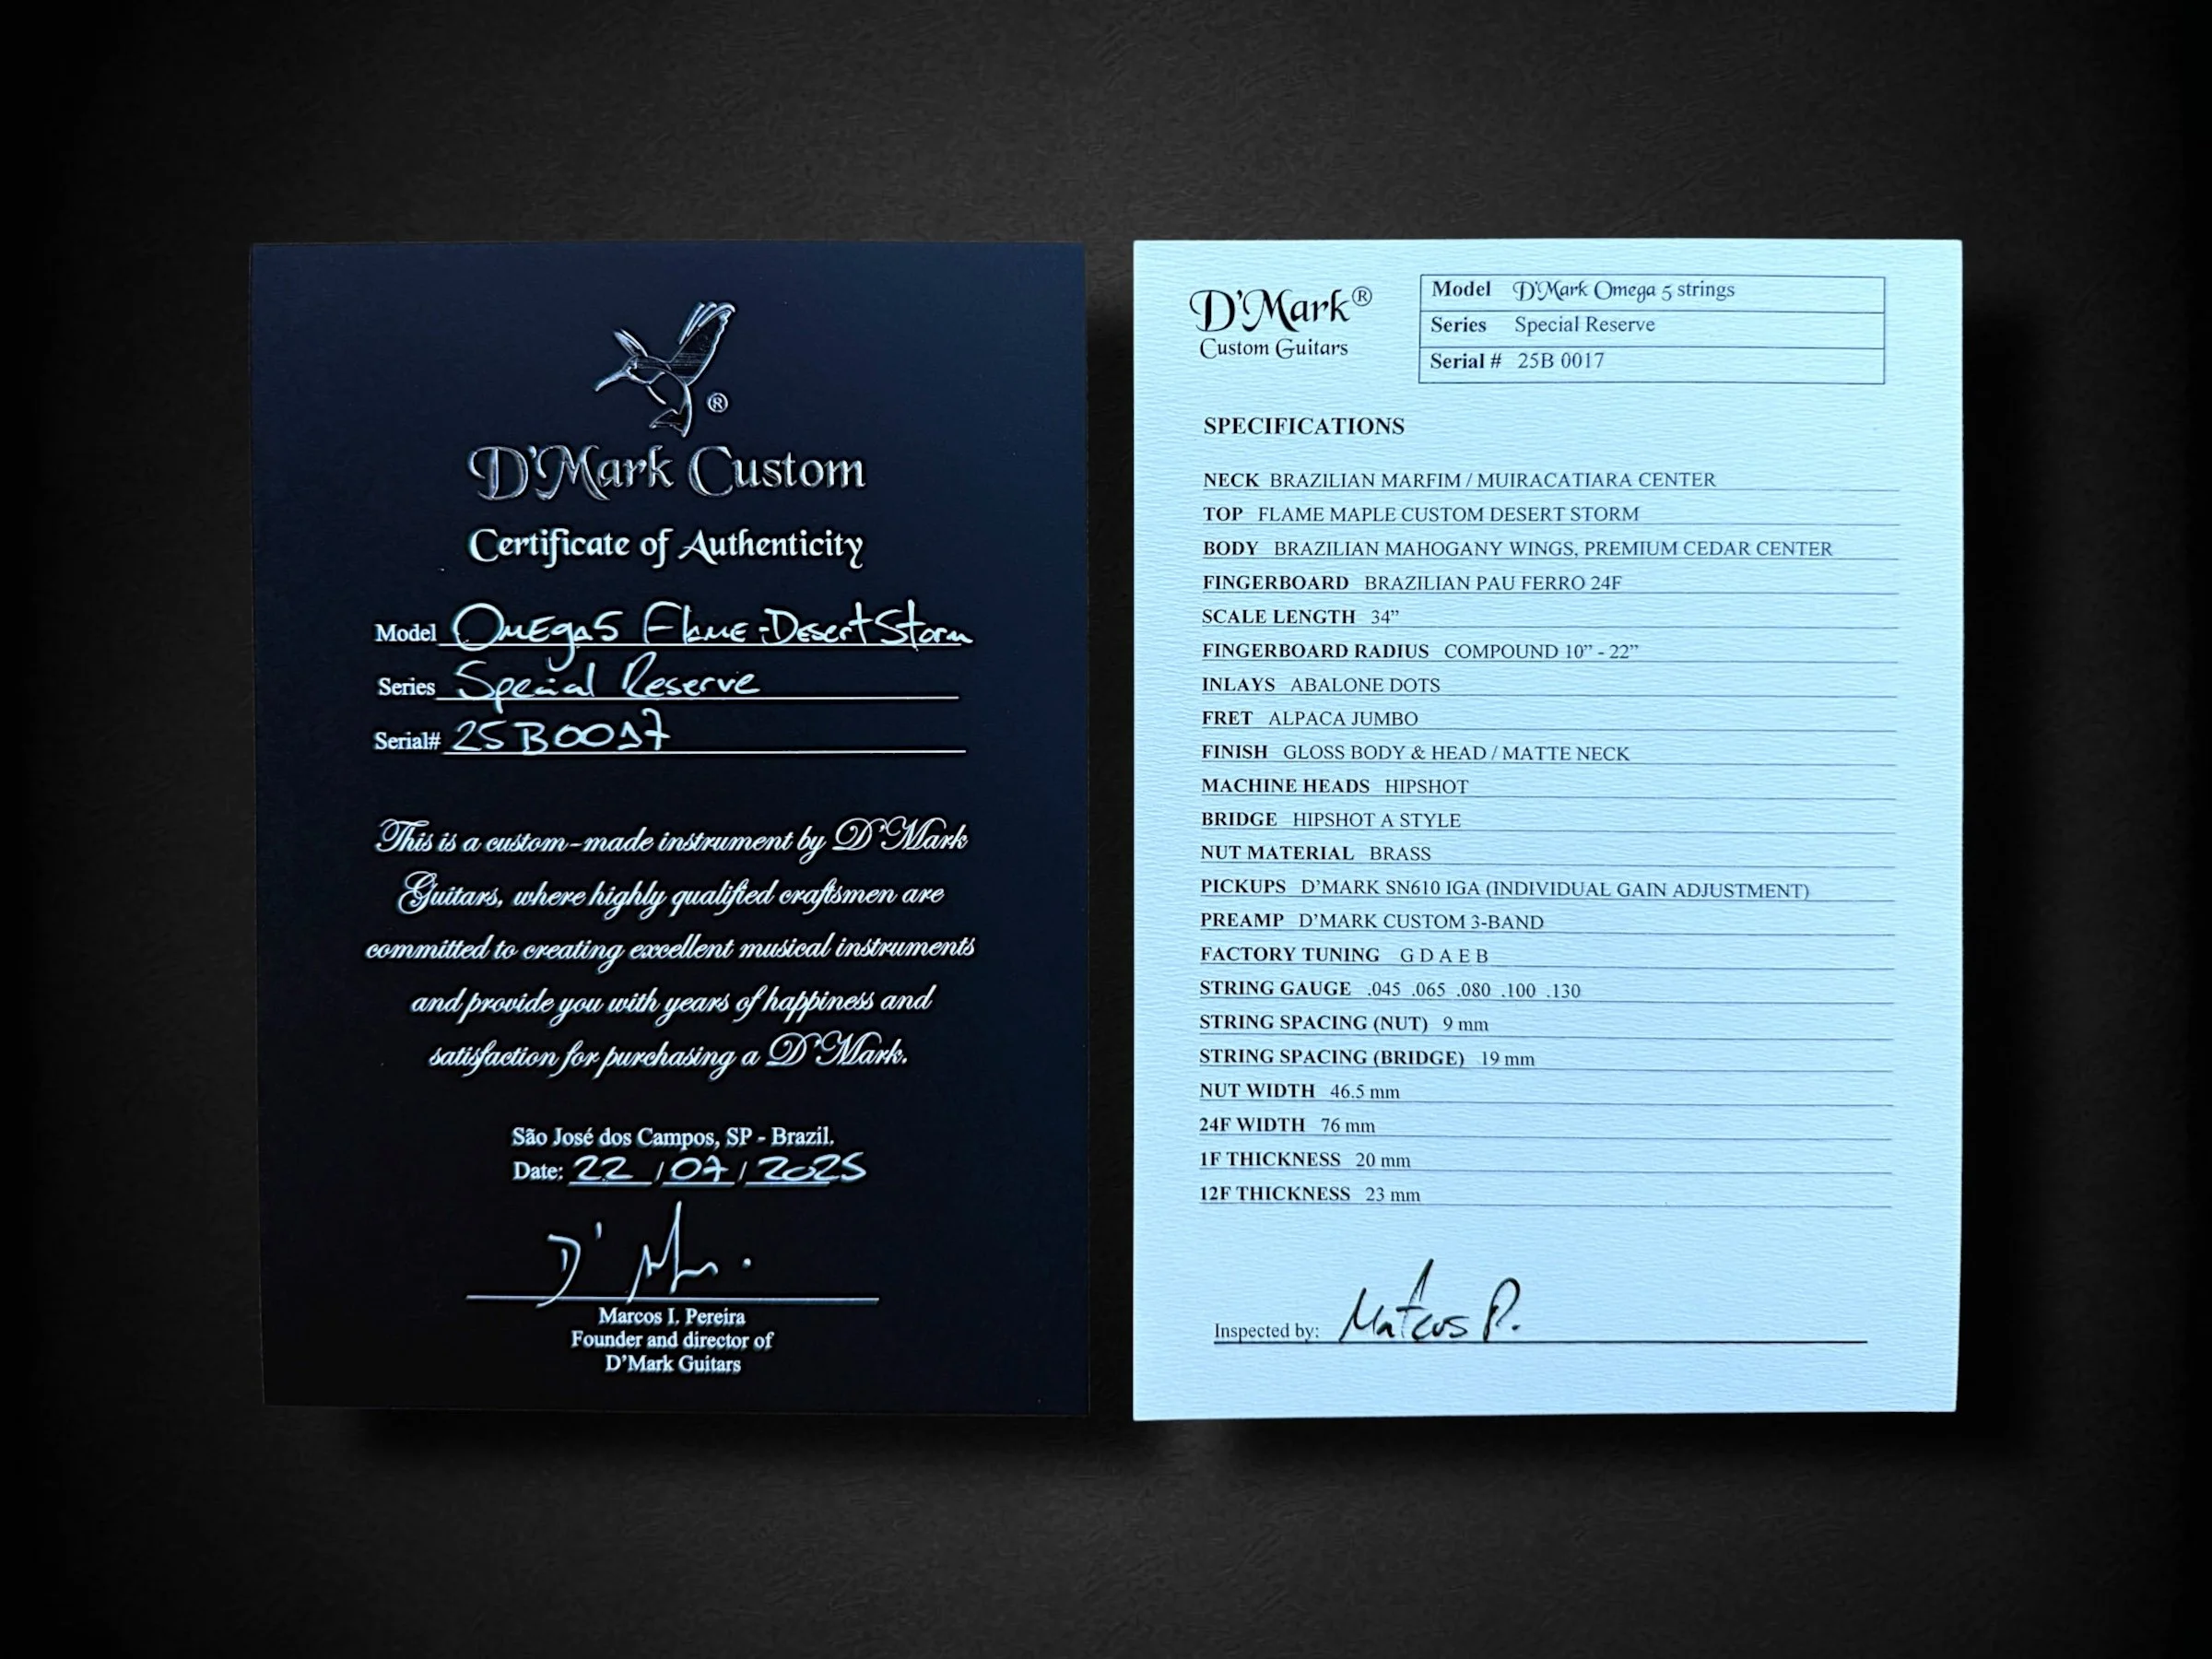 ®
D'Mark Custom
Certificate of Authenticity
Model OmEga5 Flame-Desert Storm
Series Special Reserve
Serial# 25B0017
This is a custom-made instrument by D'Mark
Guitars, where highly qualified craftsmen are
committed to creating excellent musical instruments
and provide you with years of happiness and
satisfaction for purchasing a D'Mark.
São José dos Campos, SP - Brazil.
Date: 22 / 07 / 2025
D' M.
Marcos I. Pereira
Founder and director of
D'Mark Guitars
D'Mark®
Custom Guitars
Model D'Mark Omega 5 strings
Series Special Reserve
Serial # 25B 0017
SPECIFICATIONS
NECK BRAZILIAN MARFIM / MUIRACATIARA CENTER
TOP FLAME MAPLE CUSTOM DESERT STORM
BODY BRAZILIAN MAHOGANY WINGS, PREMIUM CEDAR CENTER
FINGERBOARD BRAZILIAN PAU FERRO 24F
SCALE LENGTH 34”
FINGERBOARD RADIUS COMPOUND 10” - 22”
INLAYS ABALONE DOTS
FRET ALPACA JUMBO
FINISH GLOSS BODY & HEAD / MATTE NECK
MACHINE HEADS HIPSHOT
BRIDGE HIPSHOT A STYLE
NUT MATERIAL BRASS
PICKUPS D'MARK SN610 IGA (INDIVIDUAL GAIN ADJUSTMENT)
PREAMP D'MARK CUSTOM 3-BAND
FACTORY TUNING G D A E B
STRING GAUGE .045 .065 .080 .100 .130
STRING SPACING (NUT) 9 mm
STRING SPACING (BRIDGE) 19 mm
NUT WIDTH 46.5 mm
24F WIDTH 76 mm
1F THICKNESS 20 mm
12F THICKNESS 23 mm
Inspected by: Mateus P.